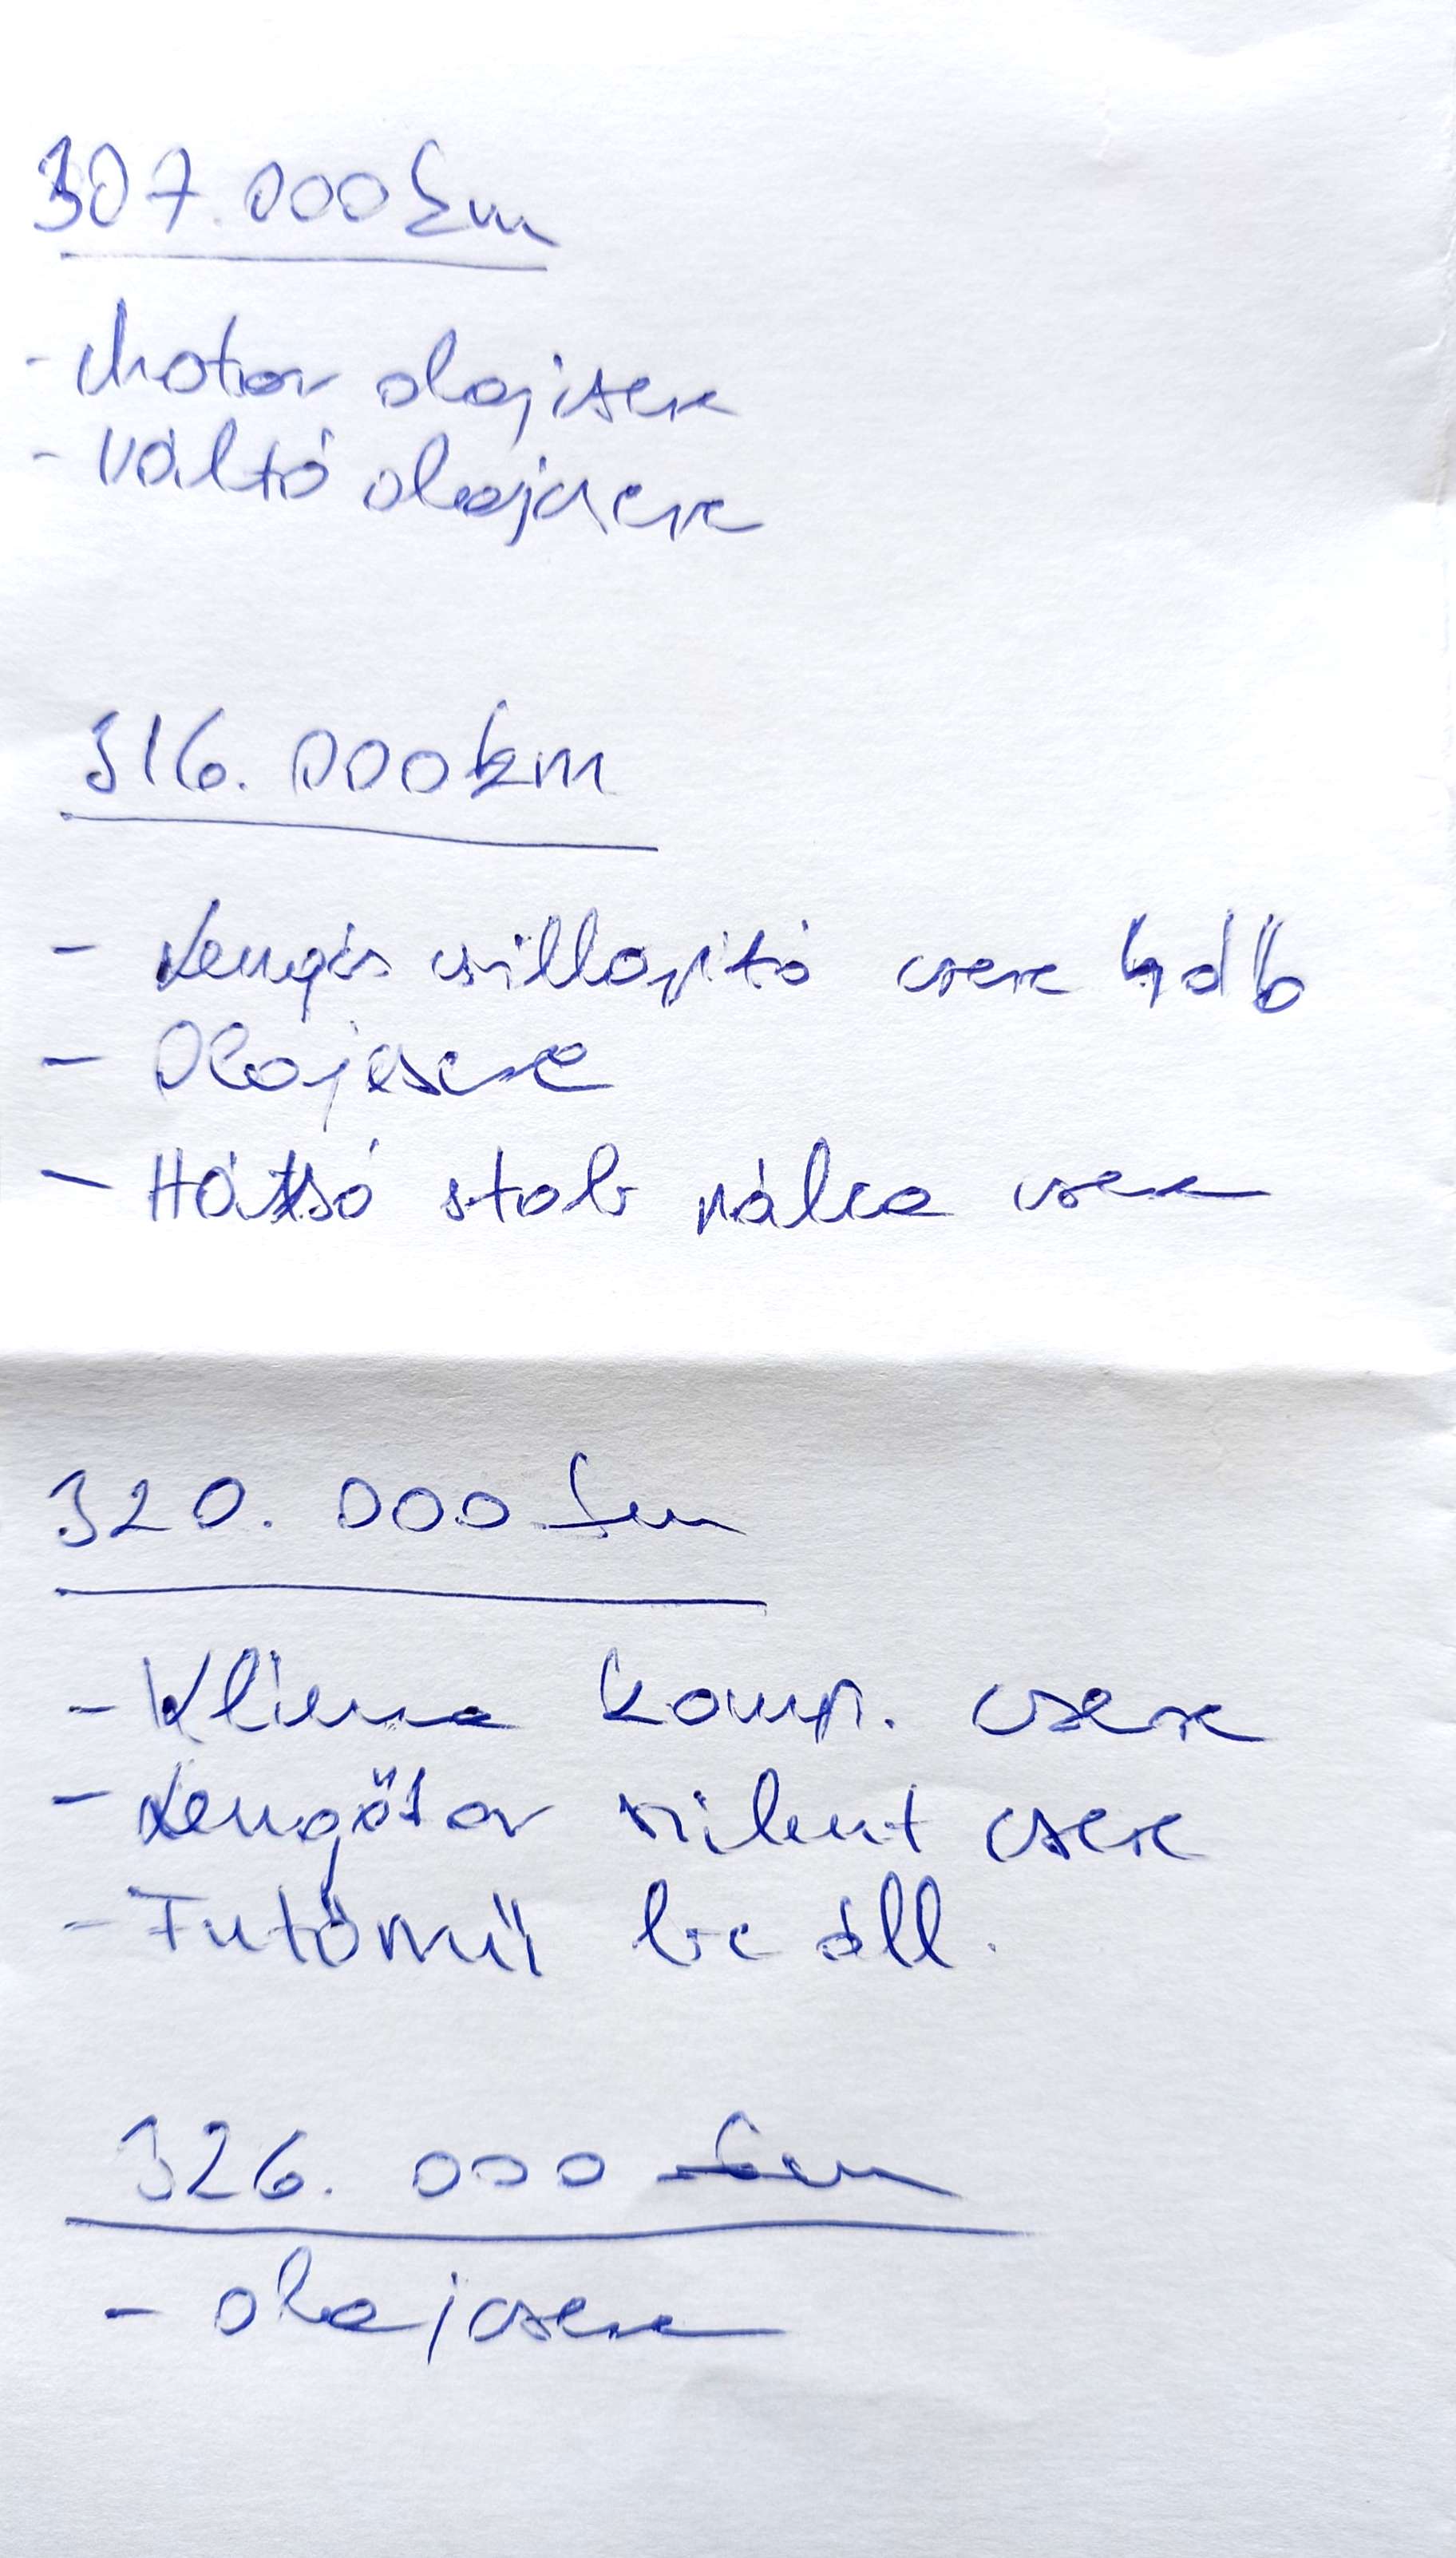 307.000 km
- Motor olajcsere
- Váltó olajcsere
316.000 km
- Lengés csillapító csere 4 db
- Olajcsere
- Hátsó stab pálca csere
320.000 km
- Klíma komp. csere
- Lengőkar szilent csere
- Futómű be áll.
326.000 km
- olajcsere